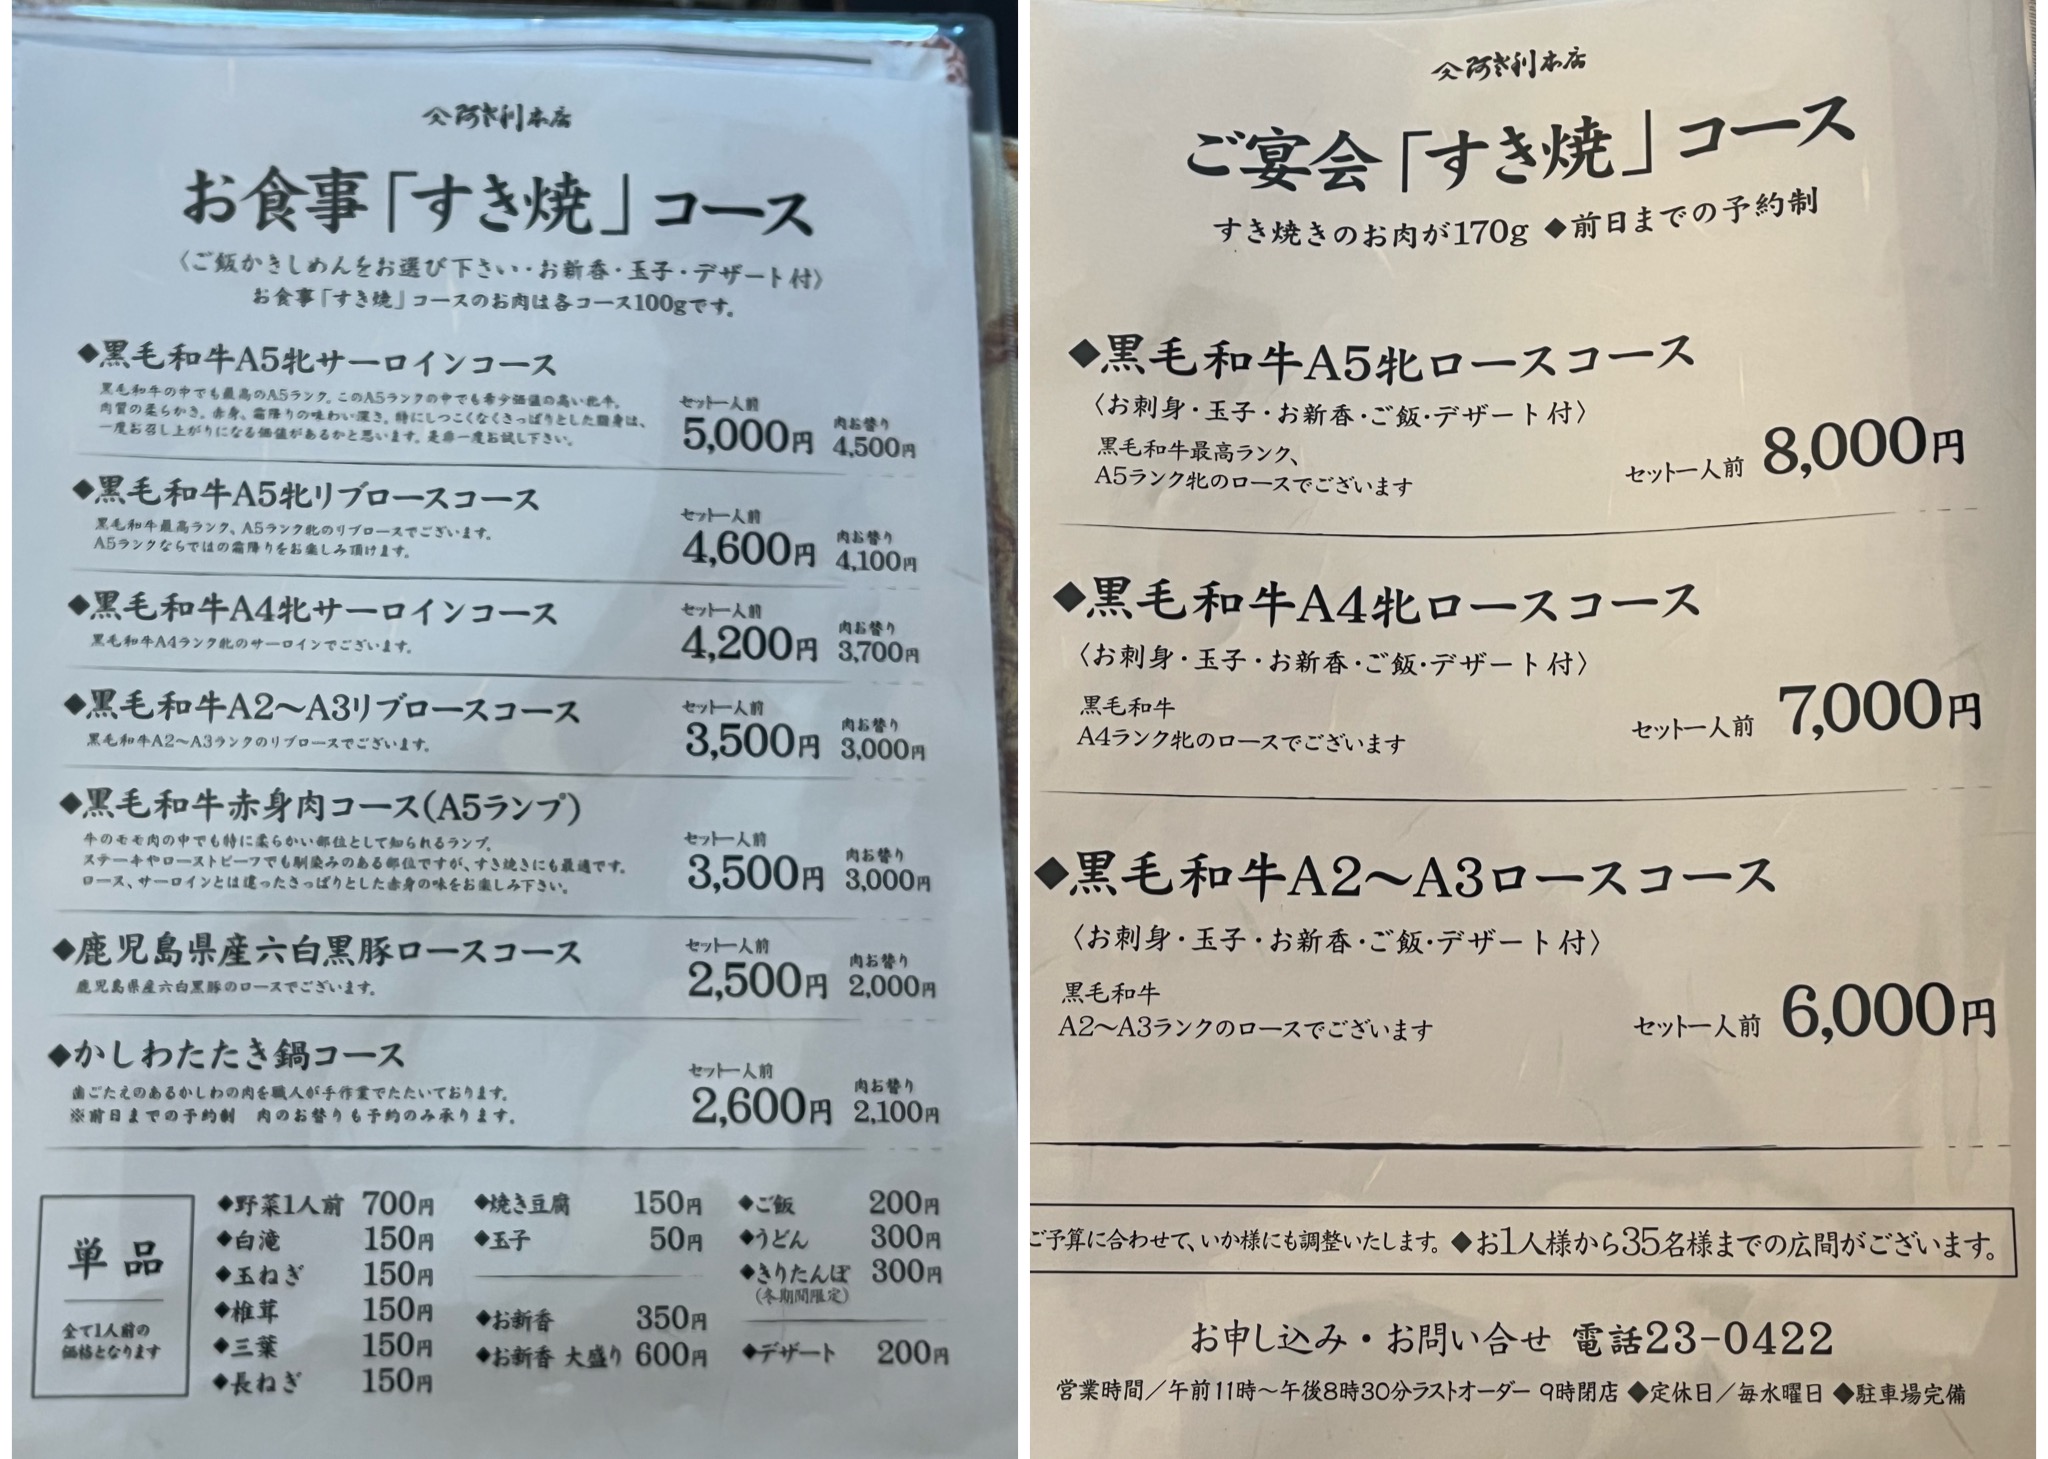 阿き利本店
お食事「すき焼」コース
〈ご飯かきしめんをお選び下さい・お新香・玉子・デザート付〉
お食事「すき焼」コースのお肉は各コース100gです。
◆黒毛和牛A5牝サーロインコース
黒毛和牛の中でも最高のA5ランク。このA5ランクの中でも希少価値の高い牝牛。
肉質の柔らかさ。赤身、霜降りの味わい深さ。特にしつこくなくさっぱりとした脂身は、
一度お召し上がりになる価値があるかと思います。是非一度お試し下さい。
セット一人前 肉お替り
5,000円 4,500円
◆黒毛和牛A5牝リブロースコース
黒毛和牛最高ランク、A5ランク牝のリブロースでございます。
A5ランクならではの霜降りをお楽しみ頂けます。
セット一人前 肉お替り
4,600円 4,100円
◆黒毛和牛A4牝サーロインコース
黒毛和牛A4ランク牝のサーロインでございます。
セット一人前 肉お替り
4,200円 3,700円
◆黒毛和牛A2〜A3リブロースコース
黒毛和牛A2〜A3ランクのリブロースでございます。
セット一人前 肉お替り
3,500円 3,000円
◆黒毛和牛赤身肉コース(A5ランプ)
牛のモモ肉の中でも特に柔らかい部位として知られるランプ。
ステーキやローストビーフでも馴染みのある部位ですが、すき焼きにも最適です。
ロース、サーロインとは違ったさっぱりとした赤身の味をお楽しみ下さい。
セット一人前 肉お替り
3,500円 3,000円
◆鹿児島県産六白黒豚ロースコース
鹿児島県産六白黒豚のロースでございます。
セット一人前 肉お替り
2,500円 2,000円
◆かしわたたき鍋コース
歯ごたえのあるかしわの肉を職人が手作業でたたいております。
※前日までの予約制 肉のお替りも予約のみ承ります。
セット一人前 肉お替り
2,600円 2,100円
単品
全て1人前の
価格となります
◆野菜1人前 700円
◆白滝 150円
◆玉ねぎ 150円
◆椎茸 150円
◆三葉 150円
◆長ねぎ 150円
◆焼き豆腐 150円
◆玉子 50円
◆お新香 350円
◆お新香 大盛り 600円
◆ご飯 200円
◆うどん 300円
◆きりたんぽ 300円
(冬期間限定)
◆デザート 200円
阿き利本店
ご宴会「すき焼」コース
すき焼きのお肉が170g ◆前日までの予約制
◆黒毛和牛A5牝ロースコース
〈お刺身・玉子・お新香・ご飯・デザート付〉
黒毛和牛最高ランク、
A5ランク牝のロースでございます
セット一人前 8,000円
◆黒毛和牛A4牝ロースコース
〈お刺身・玉子・お新香・ご飯・デザート付〉
黒毛和牛
A4ランク牝のロースでございます
セット一人前 7,000円
◆黒毛和牛A2〜A3ロースコース
〈お刺身・玉子・お新香・ご飯・デザート付〉
黒毛和牛
A2〜A3ランクのロースでございます
セット一人前 6,000円
ご予算に合わせて、いか様にも調整いたします。◆お1人様から35名様までの広間がございます。
お申し込み・お問い合せ 電話23-0422
営業時間／午前11時〜午後8時30分ラストオーダー 9時閉店 ◆定休日／毎水曜日 ◆駐車場完備